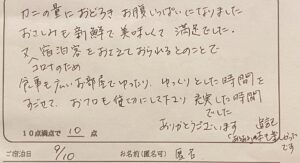 カニの量におどろきお腹いっぱいになりました
おさしみも新鮮で美味しくて満足でした。
又、宿泊客をおさえておられるとのことで
コロナのため
食事も広いお部屋でゆったり、ゆっくりとした時間を
すごせて、お風呂も貸切にして下さり 充実した時間
でした
ありがとうございます
追記
10点満点で 10 点
ご宿泊日 9/10 お名前(匿名可) 匿名